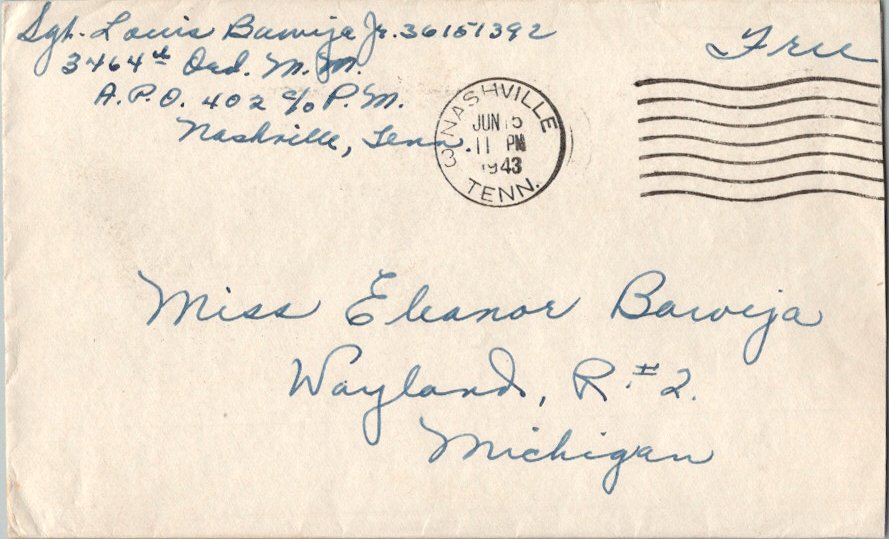 Sgt. Louis Bawija Jr. 36151392
3464th Ord. M.M.
A.P.O. 402 c/o P.M.
Nashville, Tenn.
Free
NASHVILLE
JUN 5
11 PM
1943
TENN.
3
Miss Eleanor Bawija
Wayland, R.#2.
Michigan